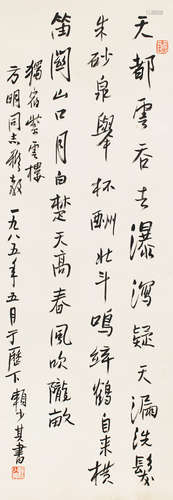 天都雲吞吉瀑瀉疑天漏洗髮
朱砂泉舉杯酬北斗鳴絃鶴自来横
笛關山口月白楚天高春風吹隴畝
獨宿紫雲樓
方明同志雅教 一九八五年五月于歷下賴少其書